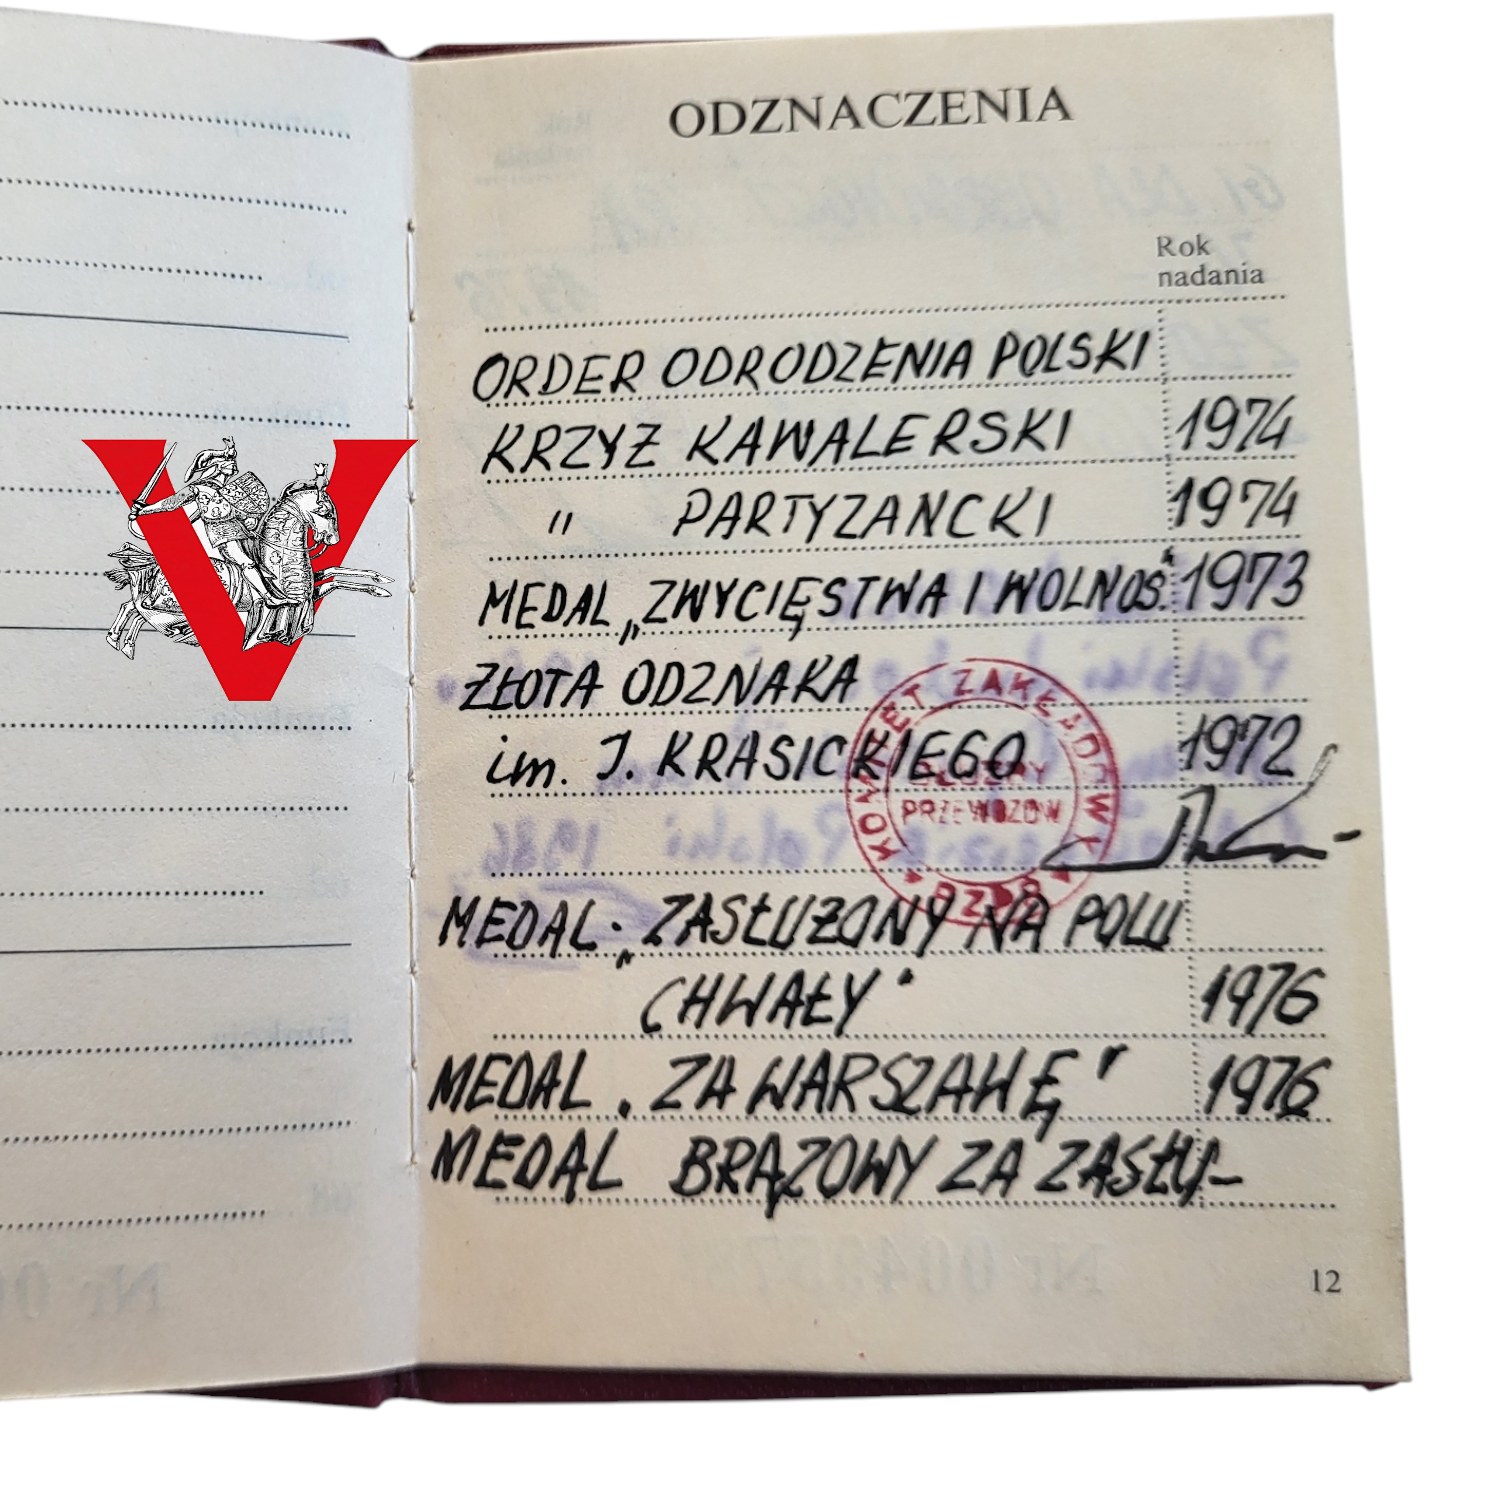 ODZNACZENIA
Rok
nadania
ORDER ODRODZENIA POLSKI
KRZYŻ KAWALERSKI 1974
" PARTYZANCKI 1974
MEDAL „ZWYCIĘSTWA I WOLNOŚ." 1973
ZŁOTA ODZNAKA
im. J. KRASICKIEGO 1972
KOMITET ZAKŁADOWY
PRZEWOZÓW
PZPR
MEDAL „ZASŁUŻONY NA POLU
CHWAŁY" 1976
MEDAL „ZA WARSZAWĘ" 1976
MEDAL BRĄZOWY ZA ZASŁU-
12
V